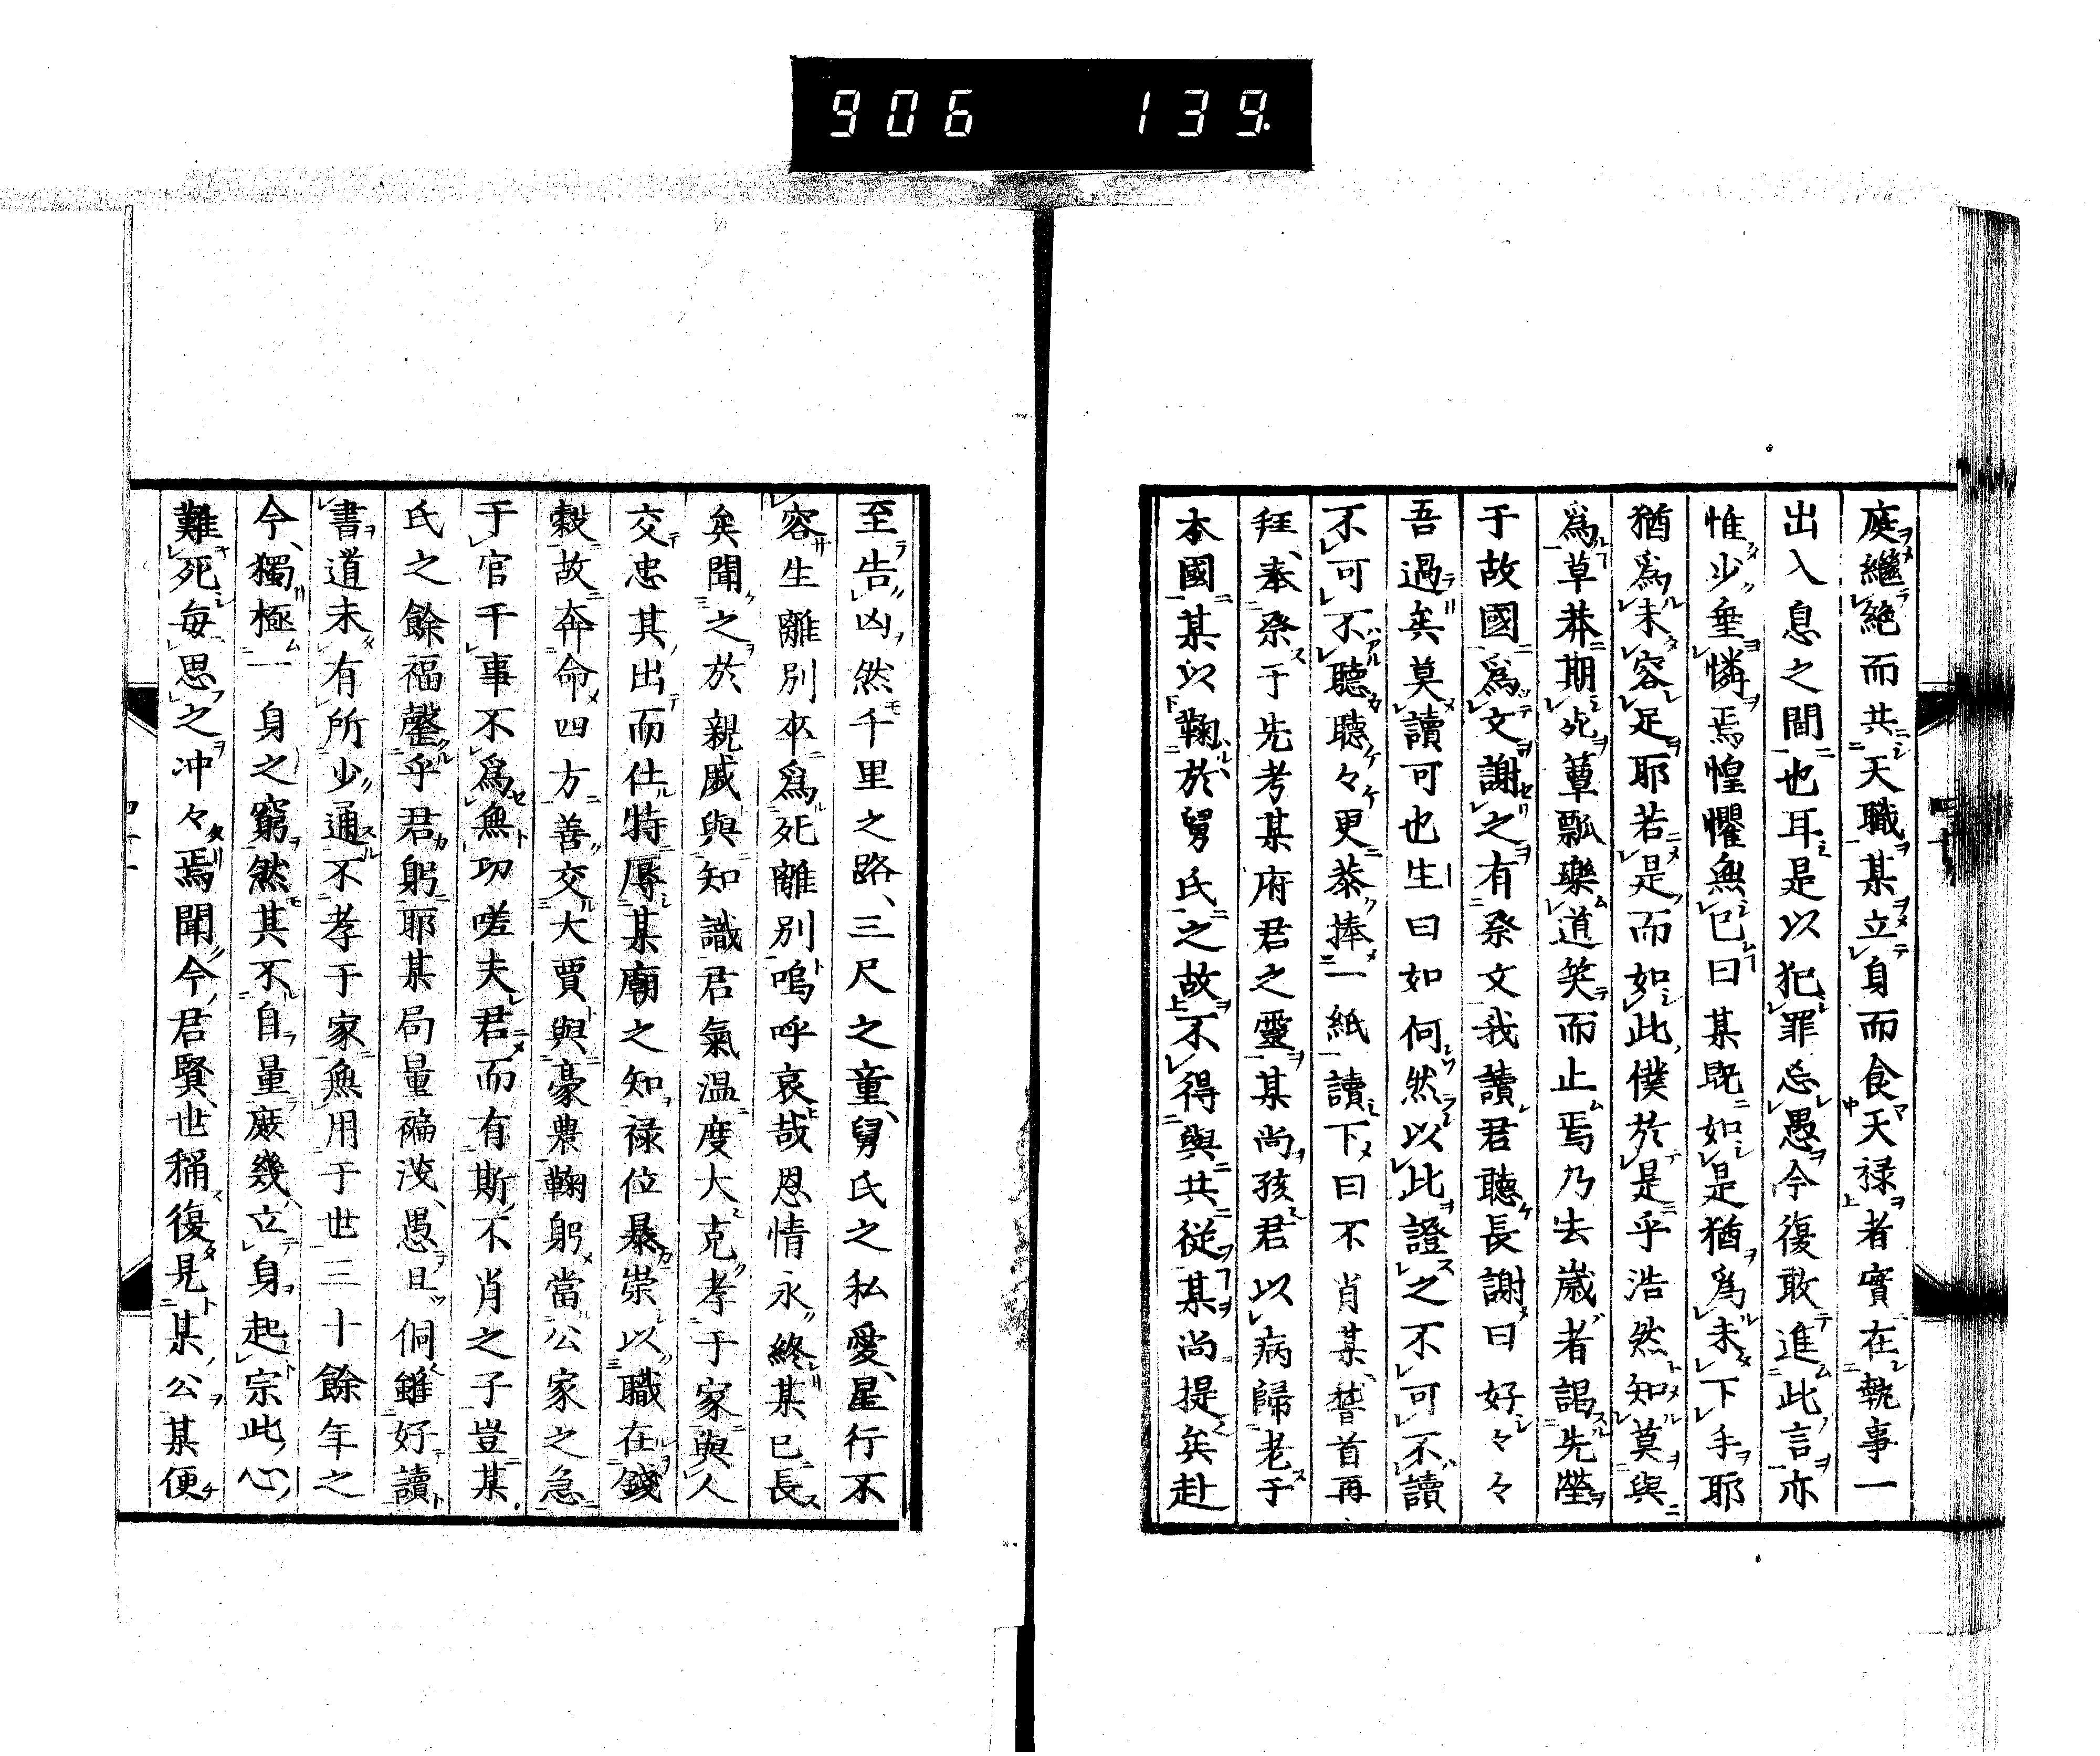 906 139.
庭繼絶而共天職某立身而食天禄者實在執事一
出入息之間也耳是以犯罪忌愚今復敢進此言亦
惟少垂憐焉惶懼無已曰某既如是猶爲未下手耶
猶爲未容足耶若是而如此僕於是乎浩然知莫與
爲草莽期死簞瓢樂道笑而止焉乃去歳者謁先塋
于故國爲文謝之有祭文我讀君聽長謝曰好々々
吾過矣莫讀可也生曰如何然以此證之不可不讀
不可不聽聽々更恭捧一紙讀下曰不肖某、稽首再
拜、奉祭于先考某府君之靈某尚孩君以病歸老于
本國某以鞠於舅氏之故不得與共從某尚提矣赴
至告凶然千里之路、三尺之童、舅氏之私愛、星行不
容生離別卒爲死離別嗚呼哀哉恩情永終某已長
矣聞之於親戚與知識君氣温度大克孝于家與人
交忠其出而仕特辱某廟之知禄位暴崇以職在錢
穀故奔命四方善交大賈與豪農鞠躬當公家之急
于官千事不爲無功嗟夫君而有斯不肖之子豈某
氏之餘福罄乎君躬耶某局量褊淺、愚且侗雖好讀
書道未有所少通不孝于家無用于世三十餘年之
今、獨極一身之窮然其不自量庶幾、立身起宗此心
難死毎思之冲々焉聞今君賢、世稱復見某公某便
四十
四十一